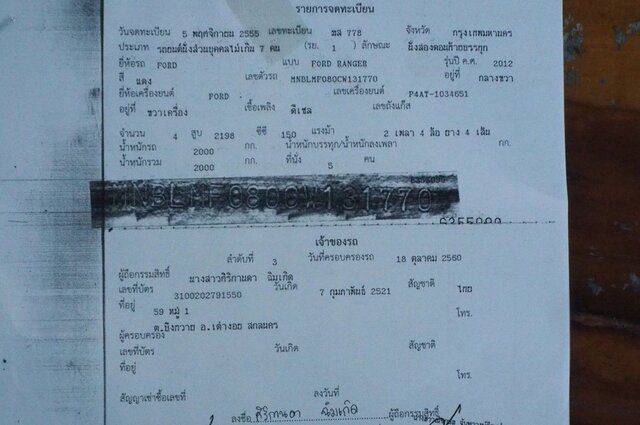 รายการจดทะเบียน
วันจดทะเบียน 5 พฤศจิกายน 2555 เลขทะเบียน ฆส 778 จังหวัด กรุงเทพมหานคร
ประเภท รถยนต์นั่งส่วนบุคคลไม่เกิน 7 คน (รย. 1 ) ลักษณะ นั่งสองตอนท้ายบรรทุก
ยี่ห้อรถ FORD แบบ FORD RANGER รุ่นปี ค.ศ. 2012
สี แดง เลขตัวรถ MNBLMF080CW131770 อยู่ที่ กลางขวา
ยี่ห้อเครื่องยนต์ FORD เลขเครื่องยนต์ P4AT-1034651
อยู่ที่ ขวาเครื่อง เชื้อเพลิง ดีเซล เลขถังแก๊ส
จำนวน 4 สูบ 2198 ซีซี 150 แรงม้า 2 เพลา 4 ล้อ ยาง 4 เส้น
น้ำหนักรถ 2000 กก. น้ำหนักบรรทุก/น้ำหนักลงเพลา กก.
น้ำหนักรวม 2000 กก. ที่นั่ง 5 คน
MNBLMF080CW131770
เจ้าของรถ
ลำดับที่ 3 วันที่ครอบครองรถ 18 ตุลาคม 2560
ผู้ถือกรรมสิทธิ์ นางสาวศิริกานดา ฉิมเกิด
เลขที่บัตร 3100202791550 วันเกิด 7 กุมภาพันธ์ 2521 สัญชาติ ไทย
ที่อยู่ 59 หมู่ 1 โทร.
ต.บึงทวาย อ.เต่างอย สกลนคร
ผู้ครอบครอง
เลขที่บัตร วันเกิด สัญชาติ
ที่อยู่ โทร.
สัญญาเช่าซื้อเลขที่ ลงวันที่
ลงชื่อ ศิริกานดา ฉิมเกิด ผู้ถือกรรมสิทธิ์